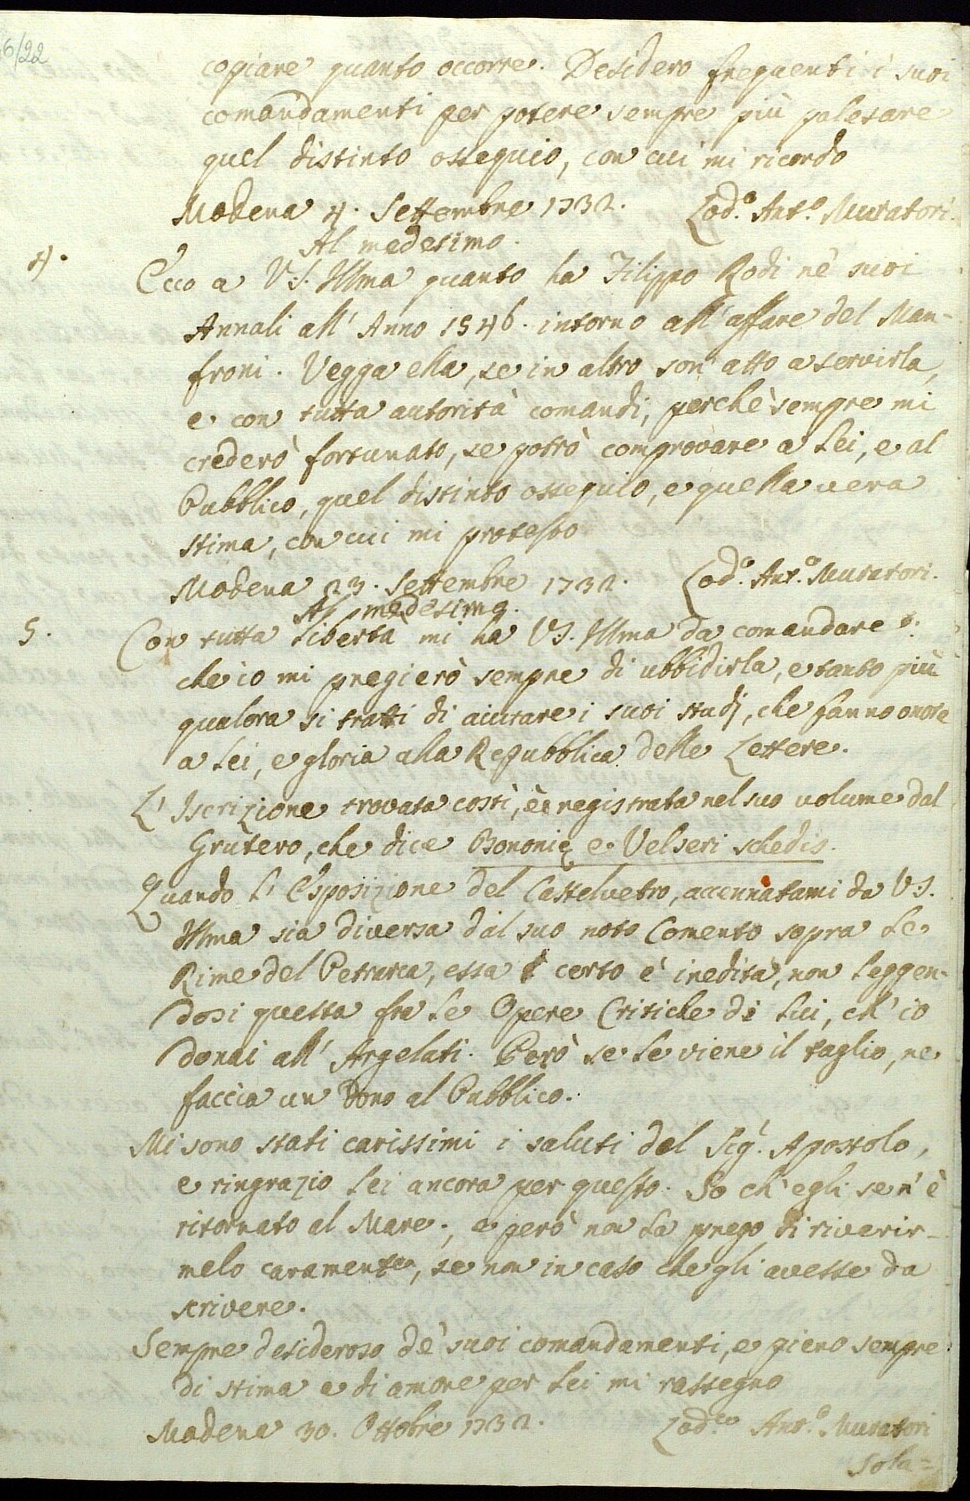 6/22
copiare quanto occorre. Desidero frequenti i suoi
comandamenti per potere sempre più palesare
quel distinto ossequio, con cui mi ricordo
Modena 4. Settembre 1732. Lod.o Ant.o Muratori.
Al medesimo.
4. Ecco a V.S. Illma quanto ha Filippo Rodi ne' suoi
Annali all' Anno 1546. intorno all' affare del Man-
froni. Vegga ella, se in altro son atto a servirla,
e con tutta autorità comandi, perchè sempre mi
crederò fortunato, se potrò comprovare a Lei, e al
Pubblico, quel distinto ossequio, e quella vera
stima, con cui mi protesto
Modena 23. Settembre 1732. Lod.o Ant.o Muratori.
Al medesimo.
5. Con tutta libertà mi ha V.S. Illma da comandare
che io mi pregierò sempre di ubbidirla, e tanto più
qualora si tratti di aiutare i suoi studj, che fanno onore
a Lei, e gloria alla Repubblica delle Lettere.
L' Iscrizione trovata costì, è registrata nel suo volume dal
Grutero, che dice Bononię e Velseri schedis.
Quando l' Esposizione del Castelvetro, accennatami da V.S.
Illma sia diversa dal suo noto Comento sopra le
Rime del Petrarca, essa certo è inedita, non leggen-
dosi questa fra le Opere Critiche di lui, ch' io
donai all' Argelati. Però se le viene il taglio, ne
faccia un dono al Pubblico.
Mi sono stati carissimi i saluti del Sig.r Apostolo,
e ringrazio Lei ancora per questo. So ch' egli se n' è
ritornato al Mare, e però non la prego di riverir-
melo caramente, se non in caso che gli avesse da
scrivere.
Sempre desideroso de' suoi comandamenti, e pieno sempre
di stima e di amore per Lei mi rassegno
Modena 30. Ottobre 1732. Lod.co Ant.o Muratori
Sola=